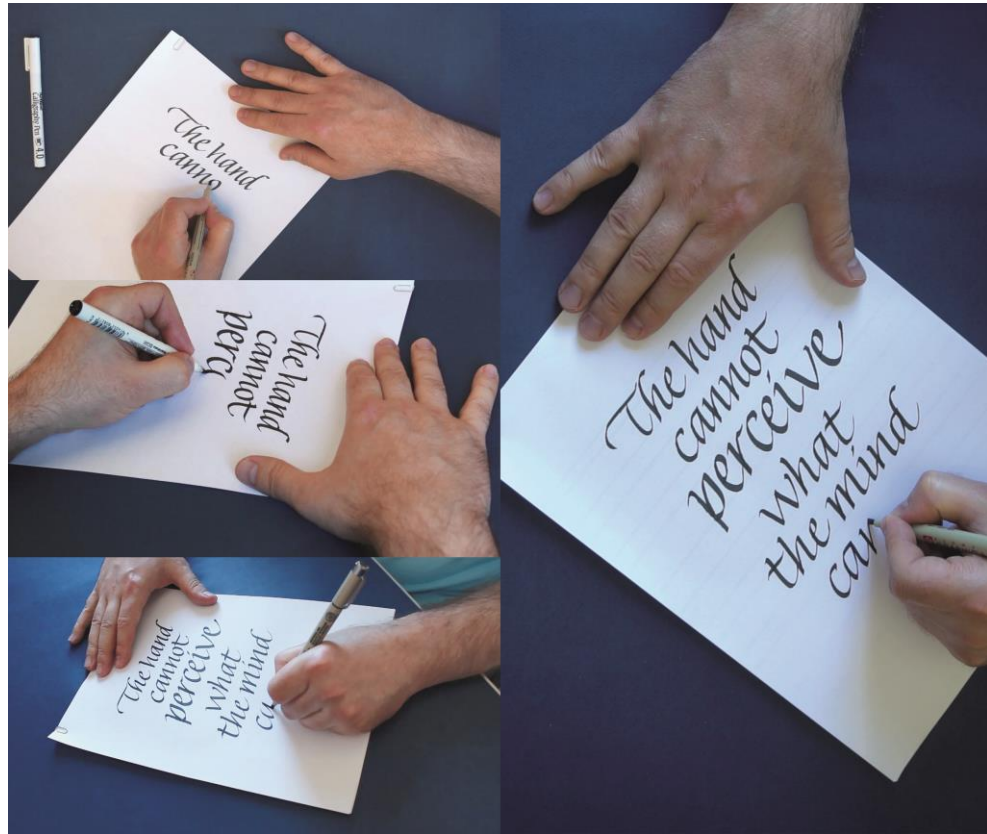 Calligraphy Pen 4.0
The hand
canno
The hand
cannot
perc
The hand
cannot
perceive
what
the mind
ca
The hand
cannot
perceive
what
the mind
can